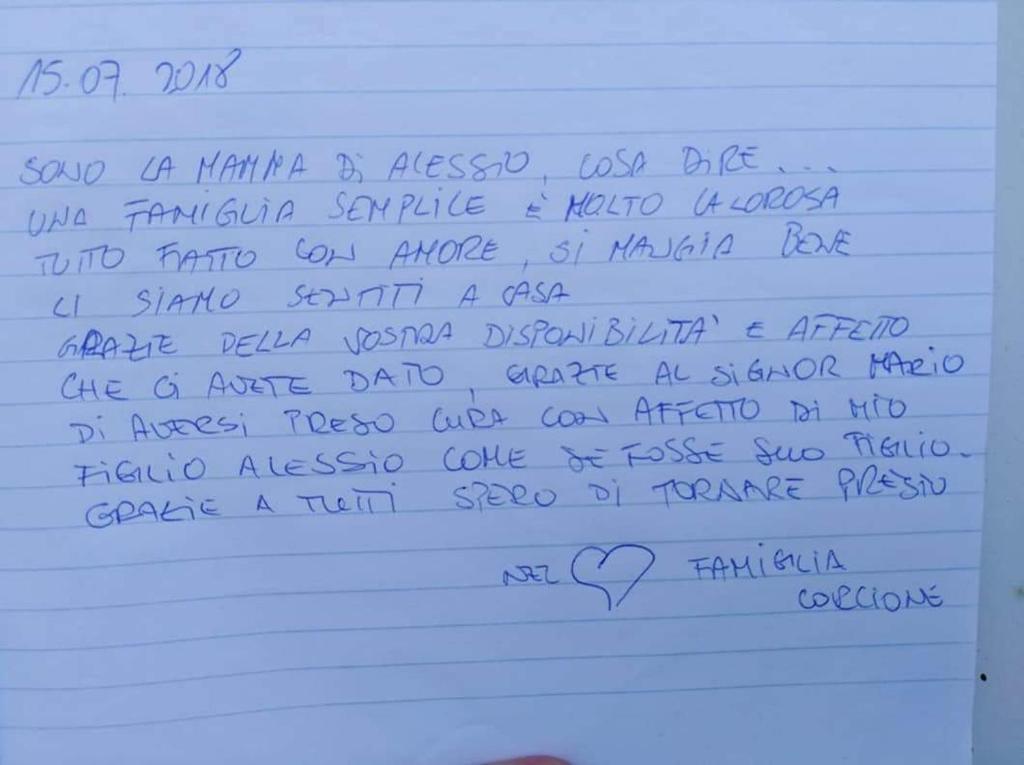 15.07.2018
SONO LA MAMMA Di ALESSiO, COSA DiRE....
UNA FAMiGLiA SEMPLiCE È MOLTO CALOROSA
TUTTO FATTO CON AMORE, Si MANGiA BENE
CI SIAMO SENTITI A CASA
GRAZIE DELLA VOSTRA DISPONIBILITA' E AFFETTO
CHE Ci AVETE DATO, GRAZIE AL SiGNOR MARIO
Di AVERSi PRESO CURA CON AFFETTO Di MIO
FiGLIO ALESSIO COME SE FOSSE SUO FIGLIO.
GRAZIE A TUTTI SPERO Di TORNARE PRESTO
NEL ♡ FAMiGLIA
CORCIONE